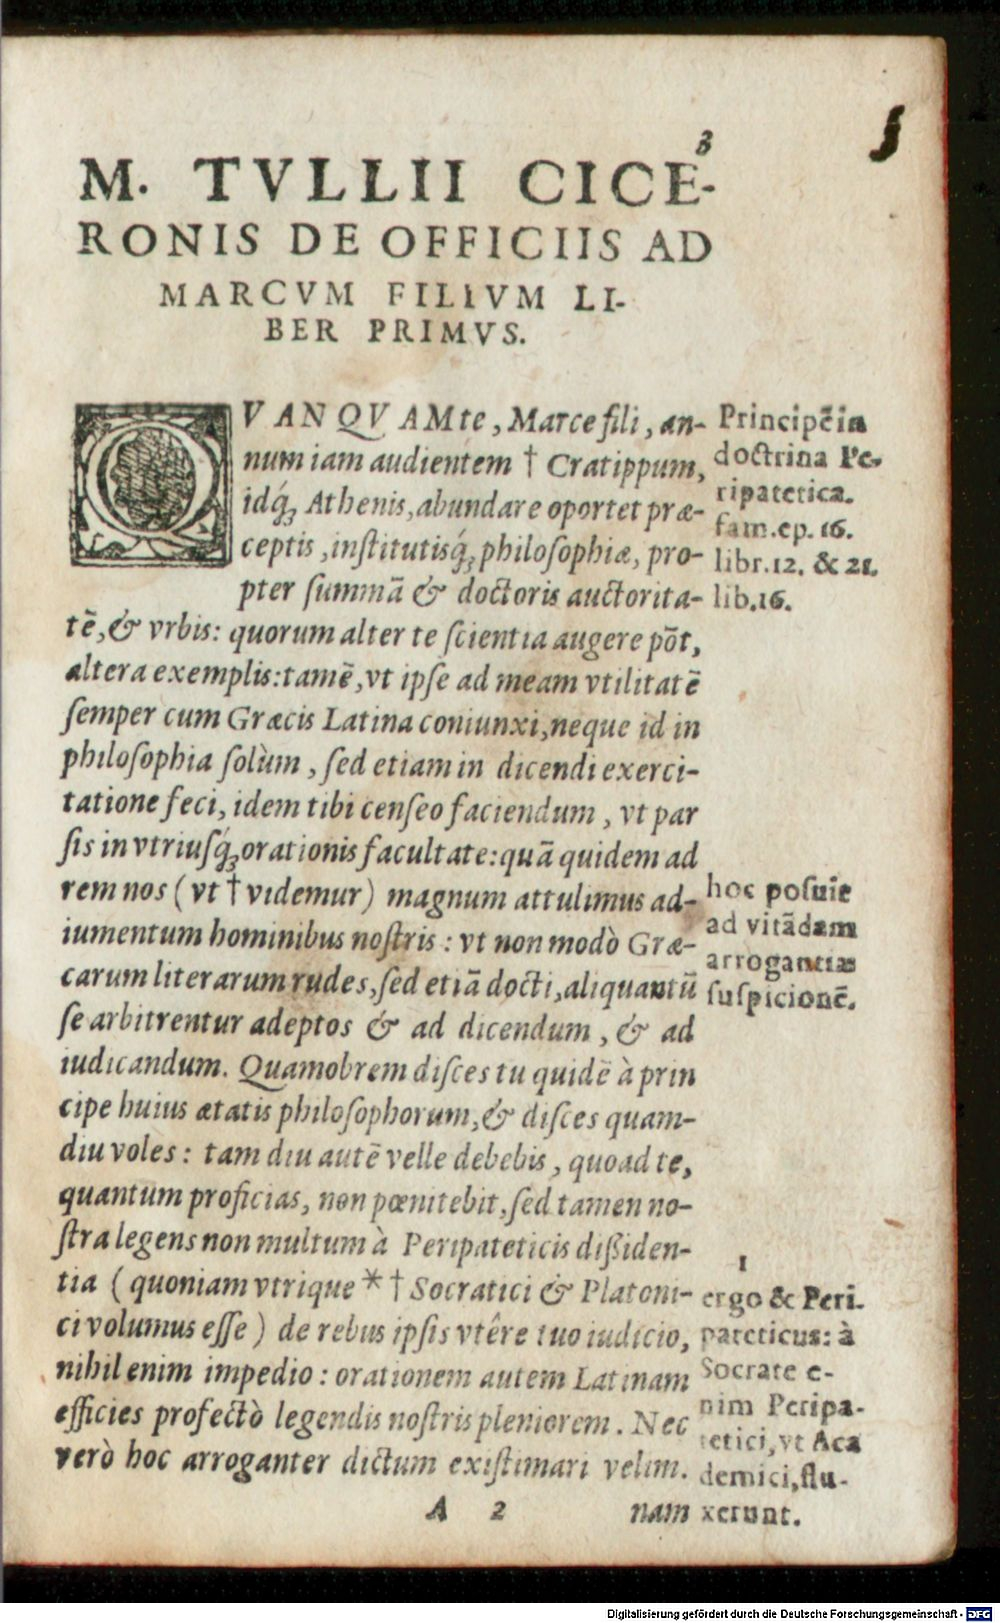 3
M. TVLLII CICE-
RONIS DE OFFICIIS AD
MARCVM FILIVM LI-
BER PRIMVS.
QVANQVAM te, Marce fili, an-
num iam audientem † Cratippum,
idq́; Athenis, abundare oportet præ-
ceptis, institutisq́; philosophiæ, pro-
pter summā & doctoris auctorita-
tē, & vrbis: quorum alter te scientia augere pōt,
altera exemplis: tamē, vt ipse ad meam vtilitatē
semper cum Græcis Latina coniunxi, neque id in
philosophia solùm, sed etiam in dicendi exerci-
tatione feci, idem tibi censeo faciendum, vt par
sis in vtriusq́; orationis facultate: quā quidem ad
rem nos (vt † videmur) magnum attulimus ad-
iumentum hominibus nostris: vt non modò Græ-
carum literarum rudes, sed etiā docti, aliquantū
se arbitrentur adeptos & ad dicendum, & ad
iudicandum. Quamobrem disces tu quidē à prin
cipe huius ætatis philosophorum, & disces quam-
diu voles: tam diu autē velle debebis, quoad te,
quantum proficias, non pœnitebit, sed tamen no-
stra legens non multum à Peripateticis dißiden-
tia (quoniam vtrique * † Socratici & Platoni-
ci volumus esse) de rebus ipsis vtêre tuo iudicio,
nihil enim impedio: orationem autem Latinam
efficies profectò legendis nostris pleniorem. Nec
verò hoc arroganter dictum existimari velim.
A 2 nam
Principē in
doctrina Pe-
ripatetica.
fam.ep. 16.
libr.12. & 21.
lib.16.
hoc posuit
ad vitādam
arrogantiæ
suspicionē.
1
ergo & Peri-
pateticus: à
Socrate e-
nim Peripa-
tetici, vt Aca
demici, flu-
xerunt.
Digitalisierung gefördert durch die Deutsche Forschungsgemeinschaft - DFG